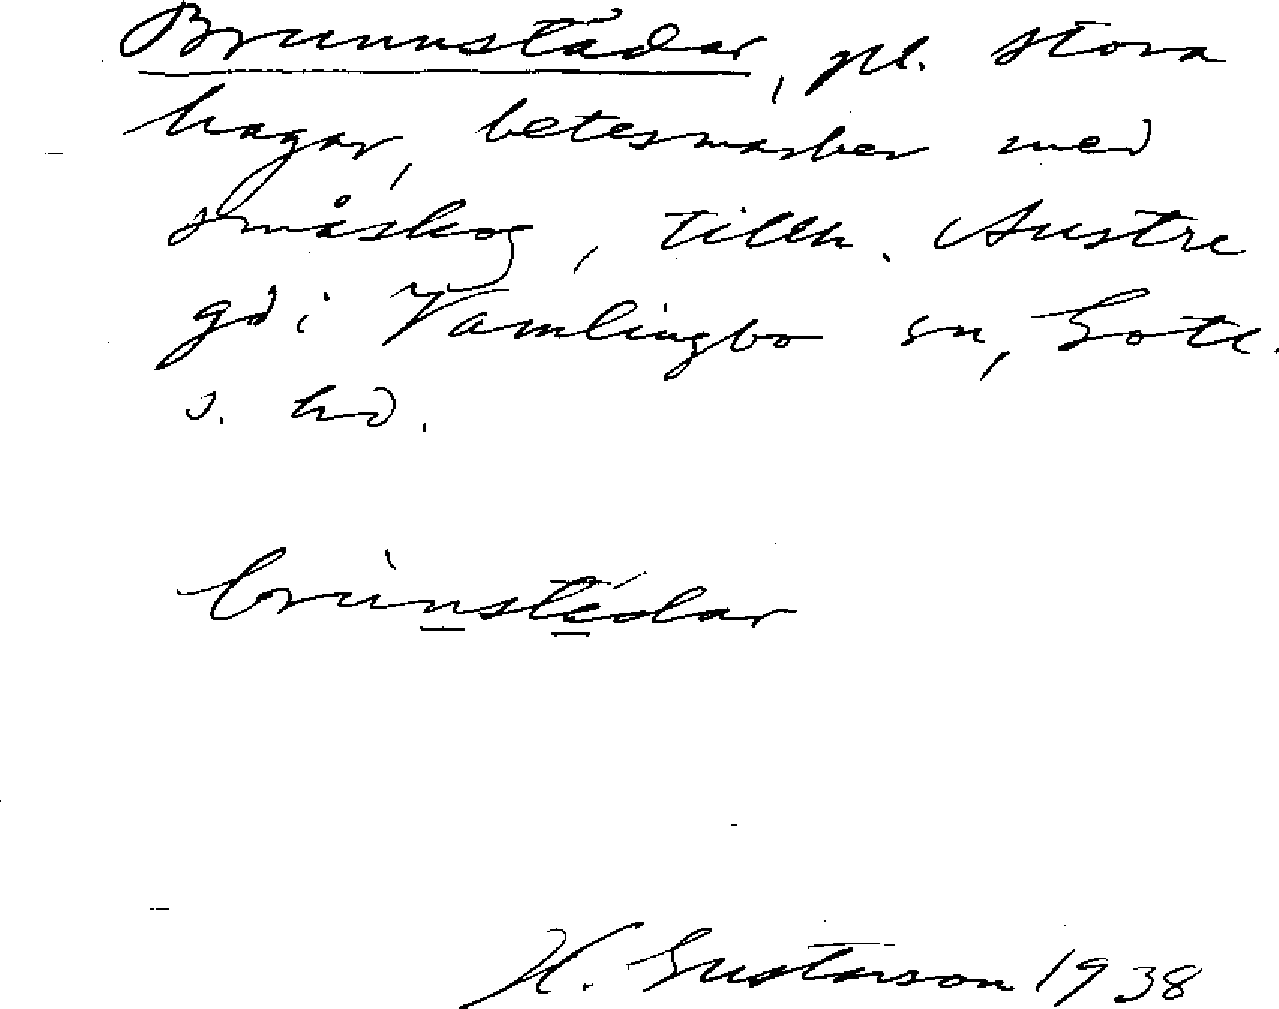 Brunnstädar, pl. stora
hagar, betesmarker med
småskog, tillh. Austre
gd i Vamlingbo sn, Gotl.
s. hd.
brùnstédar
H. Gustavson 1938